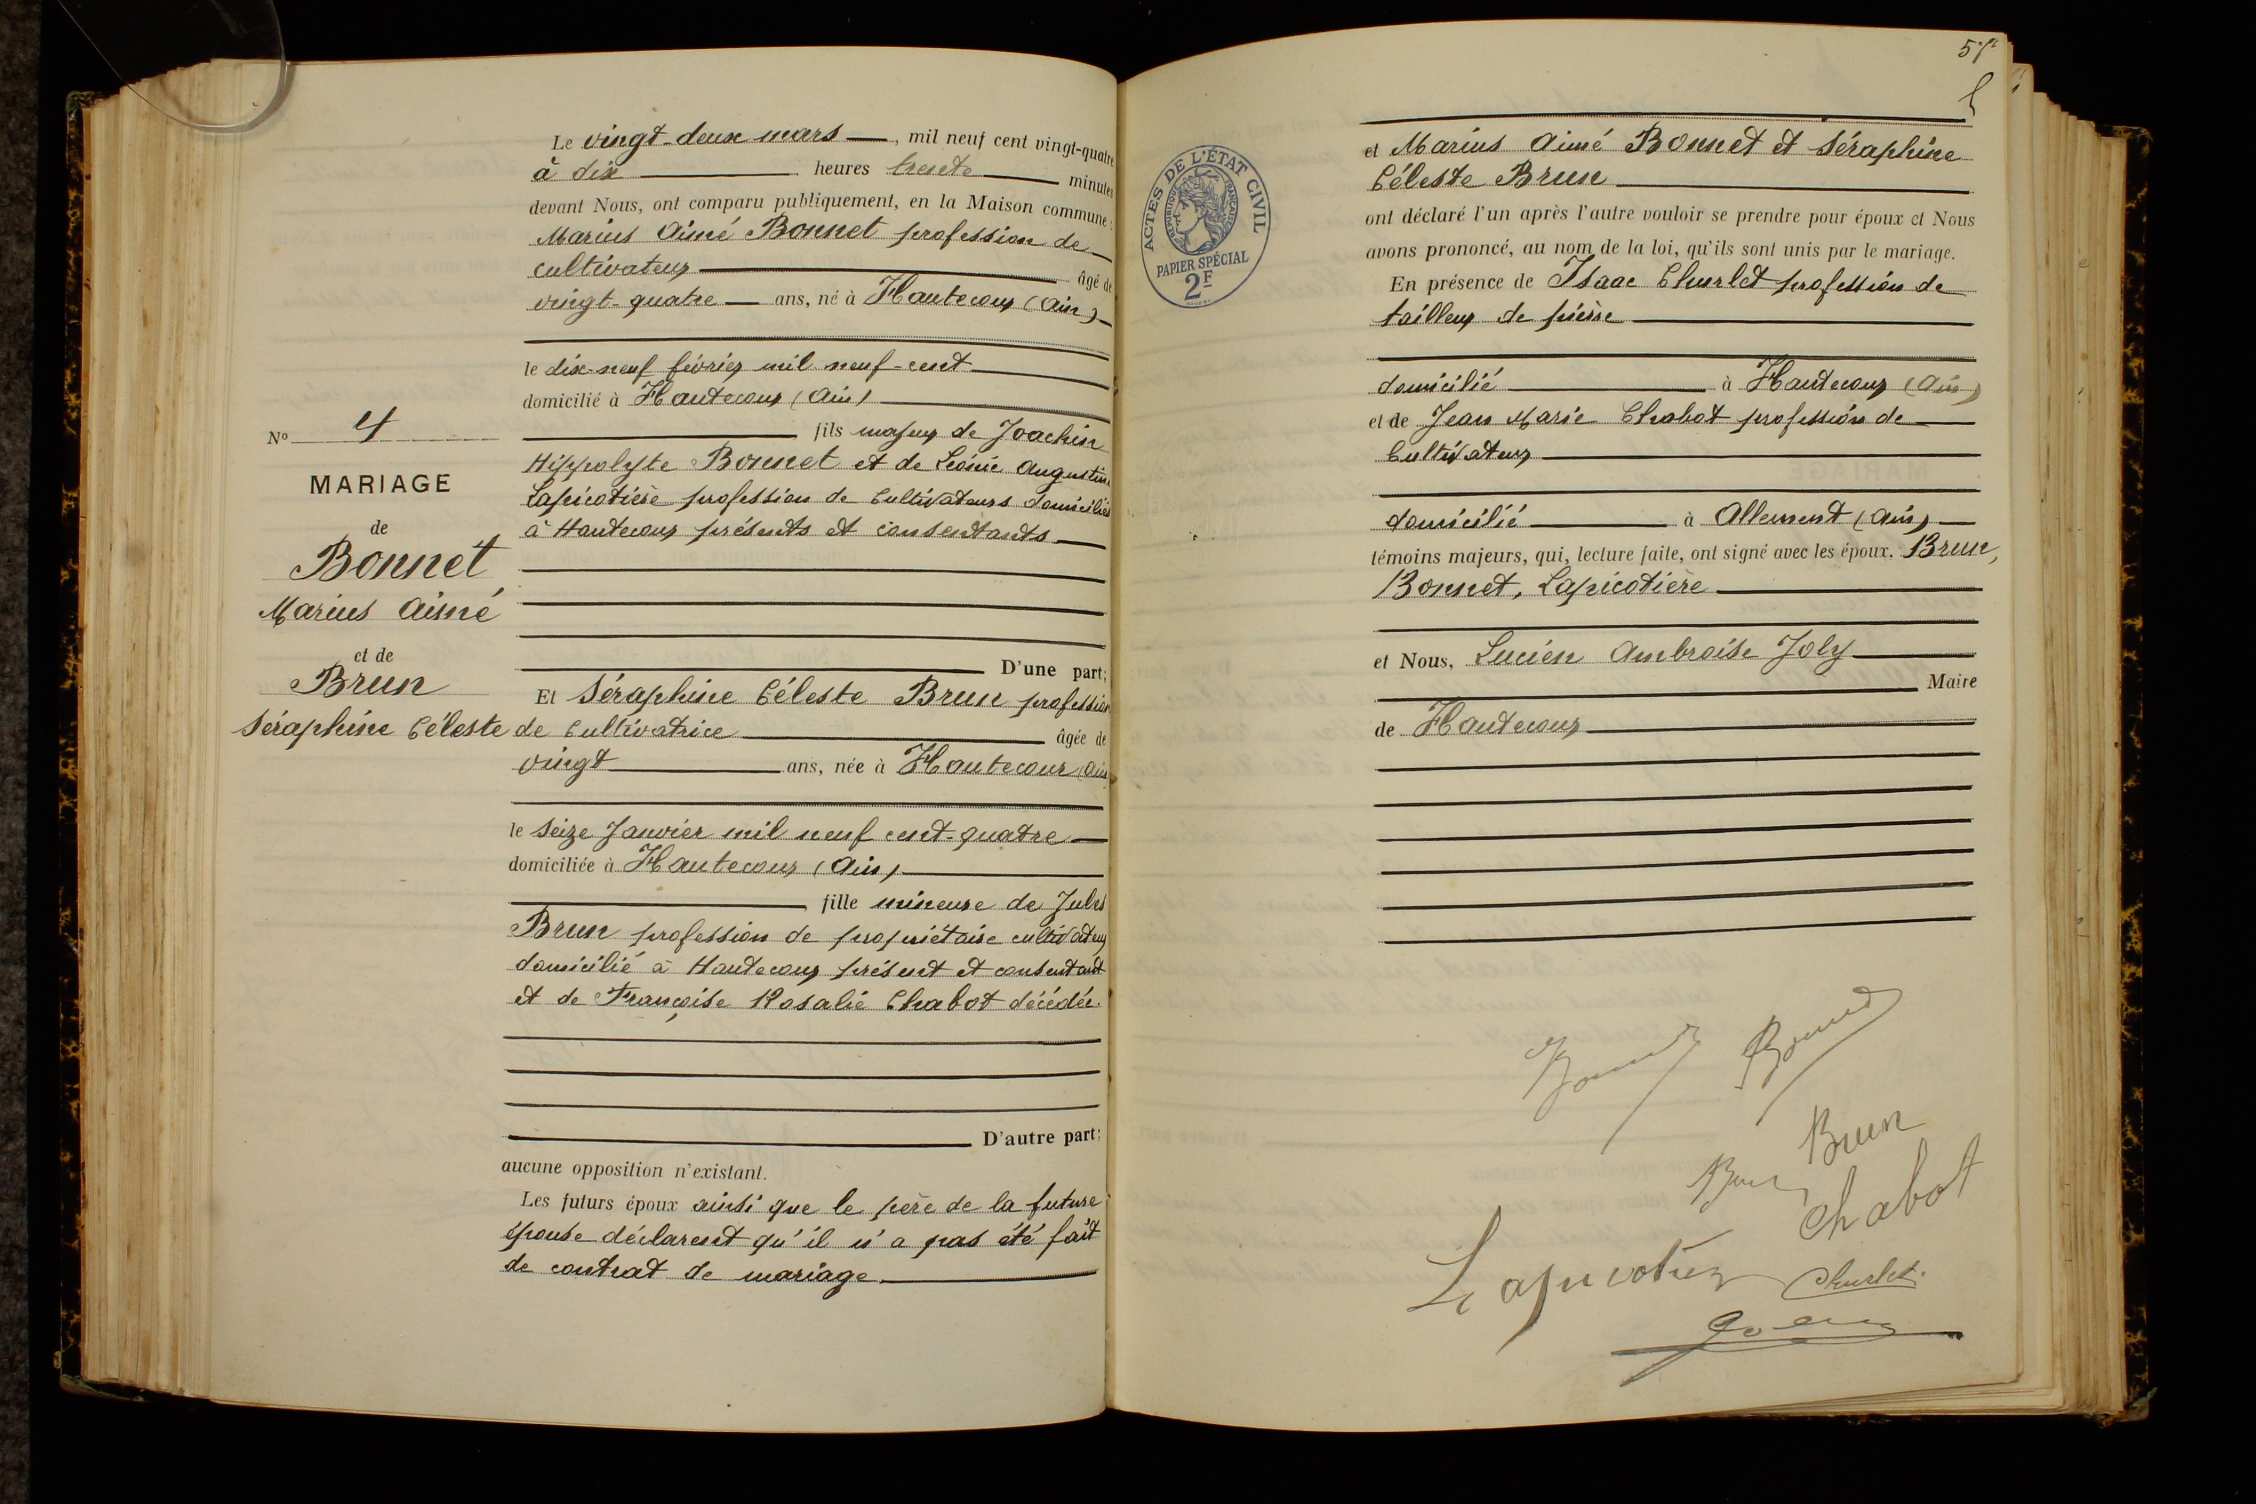 Le vingt-deux mars, mil neuf cent vingt-quatre
à dix heures trente minutes
devant Nous, ont comparu publiquement, en la Maison commune :
Marius Aimé Bonnet profession de
cultivateur âgé de
vingt-quatre ans, né à Hautecour (Ain)
le dix-neuf février mil neuf-cent
domicilié à Hautecour (Ain)
fils majeur de Joachin
Hippolyte Bonnet et de Léonie Augustine
Lapicotière profession de Cultivateurs domiciliés
à Hautecour présents et consentants
D'une part;
Et Séraphine Céleste Brun profession
de Cultivatrice âgée de
vingt ans, née à Hautecour (Ain
le seize Janvier mil neuf cent-quatre
domiciliée à Hautecour (Ain)
fille mineure de Jules
Brun profession de propriétaire cultivateur
domicilié à Hautecour présent et consentant
et de Françoise Rosalie Chabot décédée.
D'autre part;
aucune opposition n'existant.
Les futurs époux ainsi que le père de la future
épouse déclarent qu'il n'a pas été fait
de contrat de mariage.
No 4
MARIAGE
de
Bonnet
Marius Aimé
et de
Brun
Séraphine Céleste
ACTES DE L'ÉTAT CIVIL
RÉPUBLIQUE FRANÇAISE
PAPIER SPÉCIAL
2F
et Marius Aimé Bonnet et Séraphine
Céleste Brun
ont déclaré l'un après l'autre vouloir se prendre pour époux et Nous
avons prononcé, au nom de la loi, qu'ils sont unis par le mariage.
En présence de Isaac Churlet profession de
tailleur de pierre
domicilié à Hautecour (Ain)
et de Jean Marie Chabot profession de
Cultivateur
domicilié à Allement (Ain)
témoins majeurs, qui, lecture faite, ont signé avec les époux. Brun,
Bonnet, Lapicotière
et Nous, Lucien Ambroise Joly
Maire
de Hautecour
Bonnet Bonnet
Brun
Brun
Chabot
Lapicotière Churlet